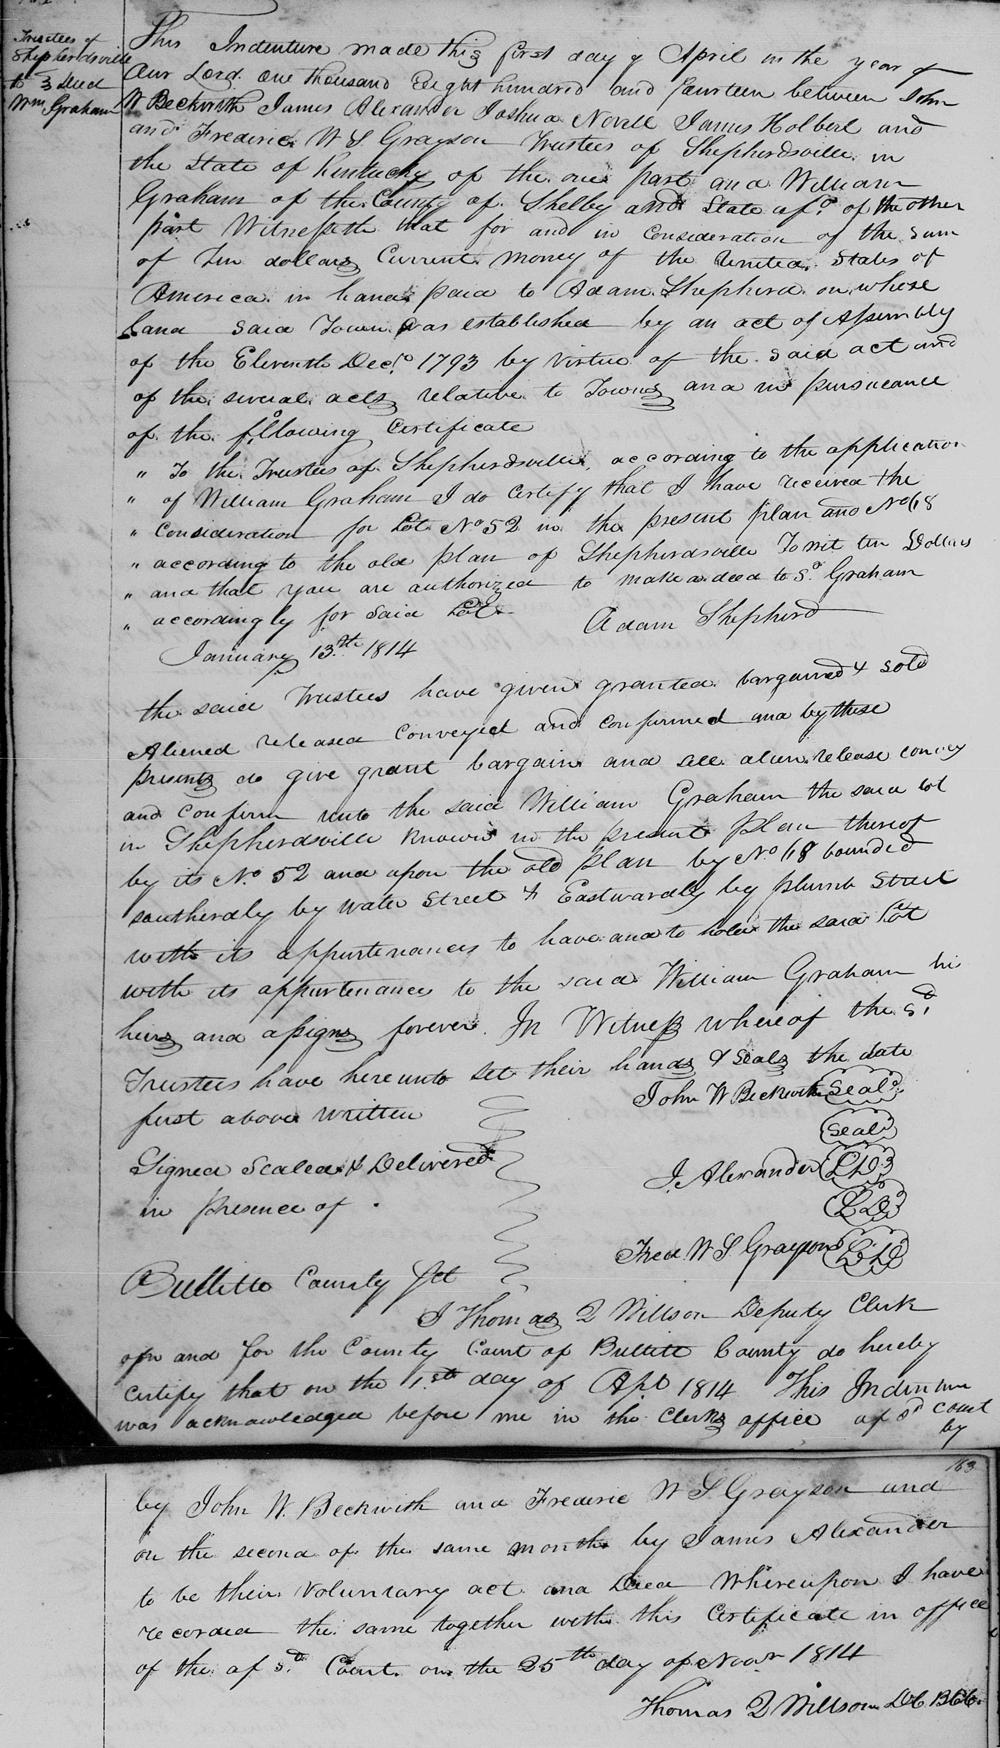 Trustees of
Shepherdsville
to } Deed
Wm Graham
This Indenture made this first day of April in the year of
Our Lord one thousand Eight hundred and fourteen between John
W Beckwith James Alexander Joshua Nevill James Holbert and
and Frederic W S Grayson Trustees of Shepherdsville in
the State of Kentucky of the one part and William
Graham of the County of Shelby and State afd. of the other
part Witnesseth that for and in consideration of the sum
of Ten dollars Current money of the United States of
America in hand paid to Adam Shepherd on whose
land said Town was established by an act of Assembly
of the Eleventh Decr. 1793 by virtue of the said act and
of the several acts relative to Towns and in pursuance
of the following Certificate
" To the Trustees of Shepherdsville, according to the application
" of William Graham I do certify that I have received the
" Consideration for Lot No 52 in the present plan and No 68
" according to the old plan of Shepherdsville To wit ten Dollars
" and that you are authorized to make a deed to Sd. Graham
" accordingly for said Lot
Adam Shepherd
January 13.th 1814
the said Trustees have given granted bargained & sold
Aliened released conveyed and confirmed and by these
presents do give grant bargain and sell alien release convey
and confirm unto the said William Graham the said lot
in Shepherdsville known in the present plan thereof
by its No. 52 and upon the old plan by No 68 bounded
southerdly by water Street & Eastwardly by plumb Street
with its appurtenances to have and to hold the said Lot
with its appurtenances to the said William Graham his
heirs and assigns forever. In Witness whereof the sd.
Trustees have hereunto set their hands & seals the date
first above written
John W Beckwith Seal
Seal
Signed Sealed & Delivered
J. Alexander LS
in presence of
LS
Fred W S Grayson LS
Bullitt County Sct
I Thomas Q Wilson Deputy Clerk
of in and for the County Court of Bullitt County do hereby
Certify that on the 1.st day of Apl 1814 This Indenture
was acknowledged before me in the Clerks office of sd court
by
163
by John W. Beckwith and Frederic W S Grayson and
on the second of the same month by James Alexander
to be their Voluntary act and Deed Whereupon I have
recorded the same together with this Certificate in office
of the af sd. Court on the 25th day of Novr 1814
Thomas Q Wilson DC BCC.